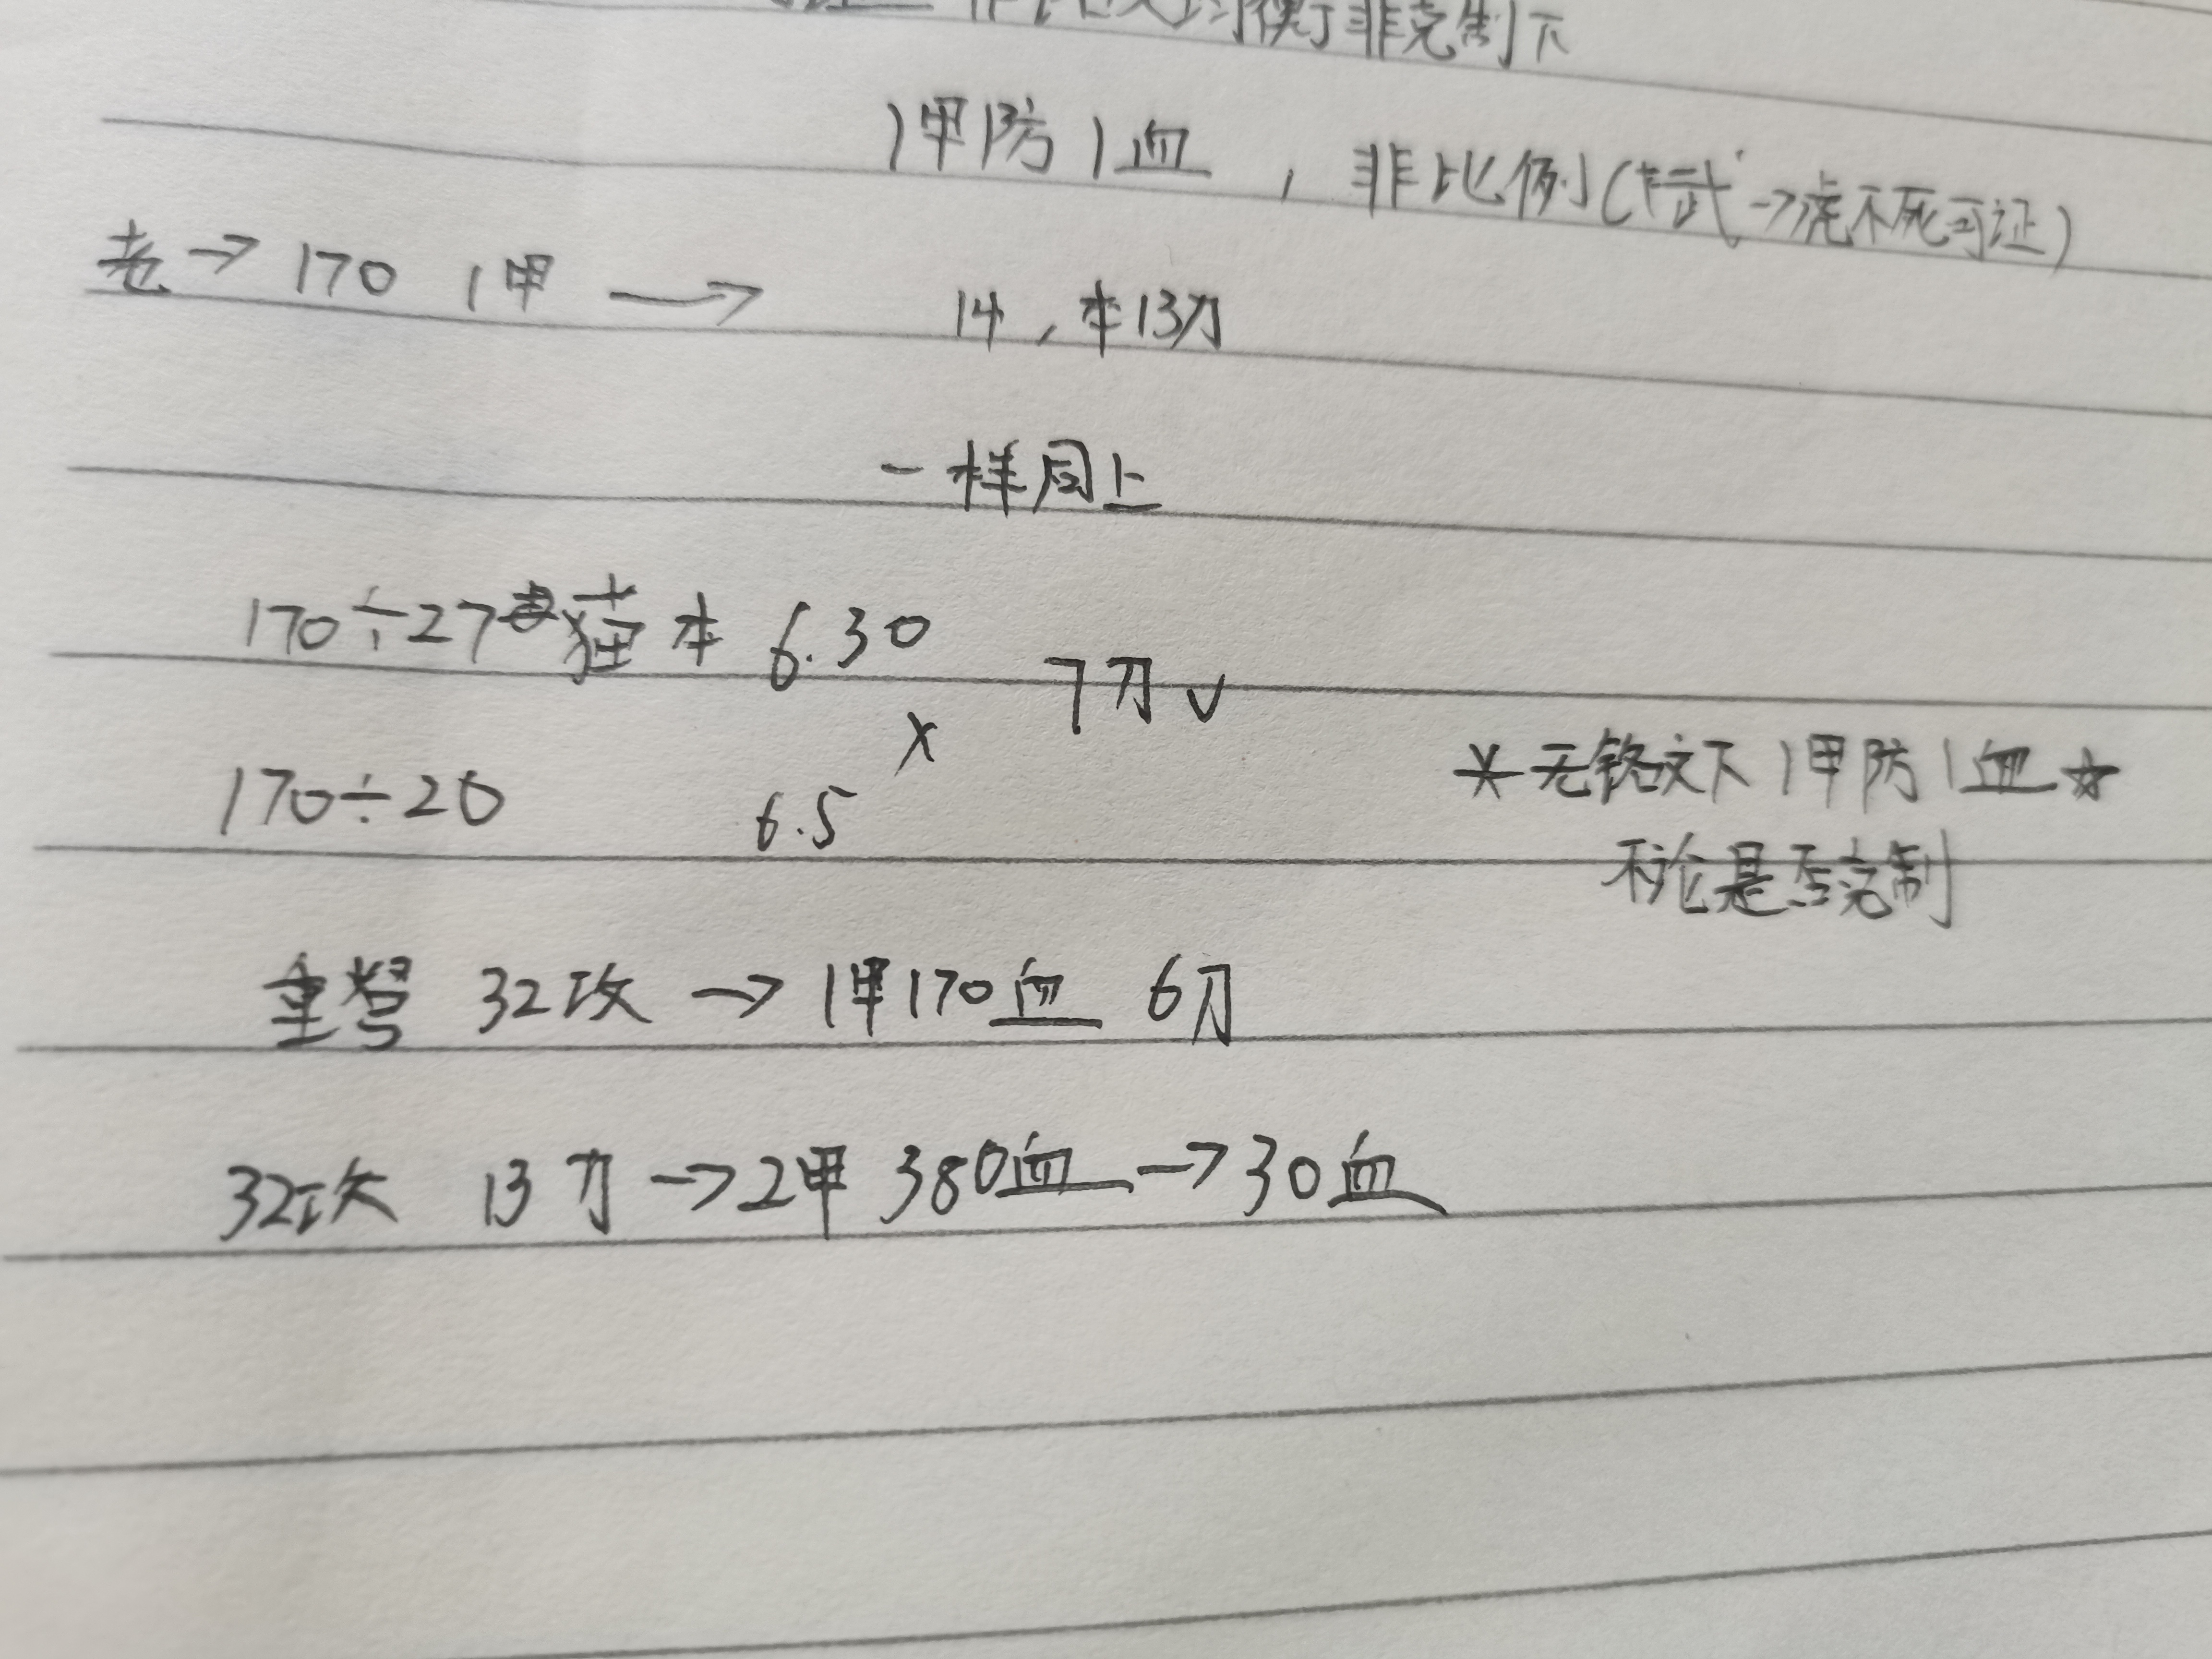 非克制下
1甲防1血，非比例(→虎不死可证)
老→170 1甲→ 14，本13刀
一样同上
170÷27 猫 本 6.30
7刀√
×
170÷20 6.5
*无铭文下1甲防1血☆
不论是否克制
重弩 32攻→1甲170血 6刀
32攻 13刀→2甲380血→30血